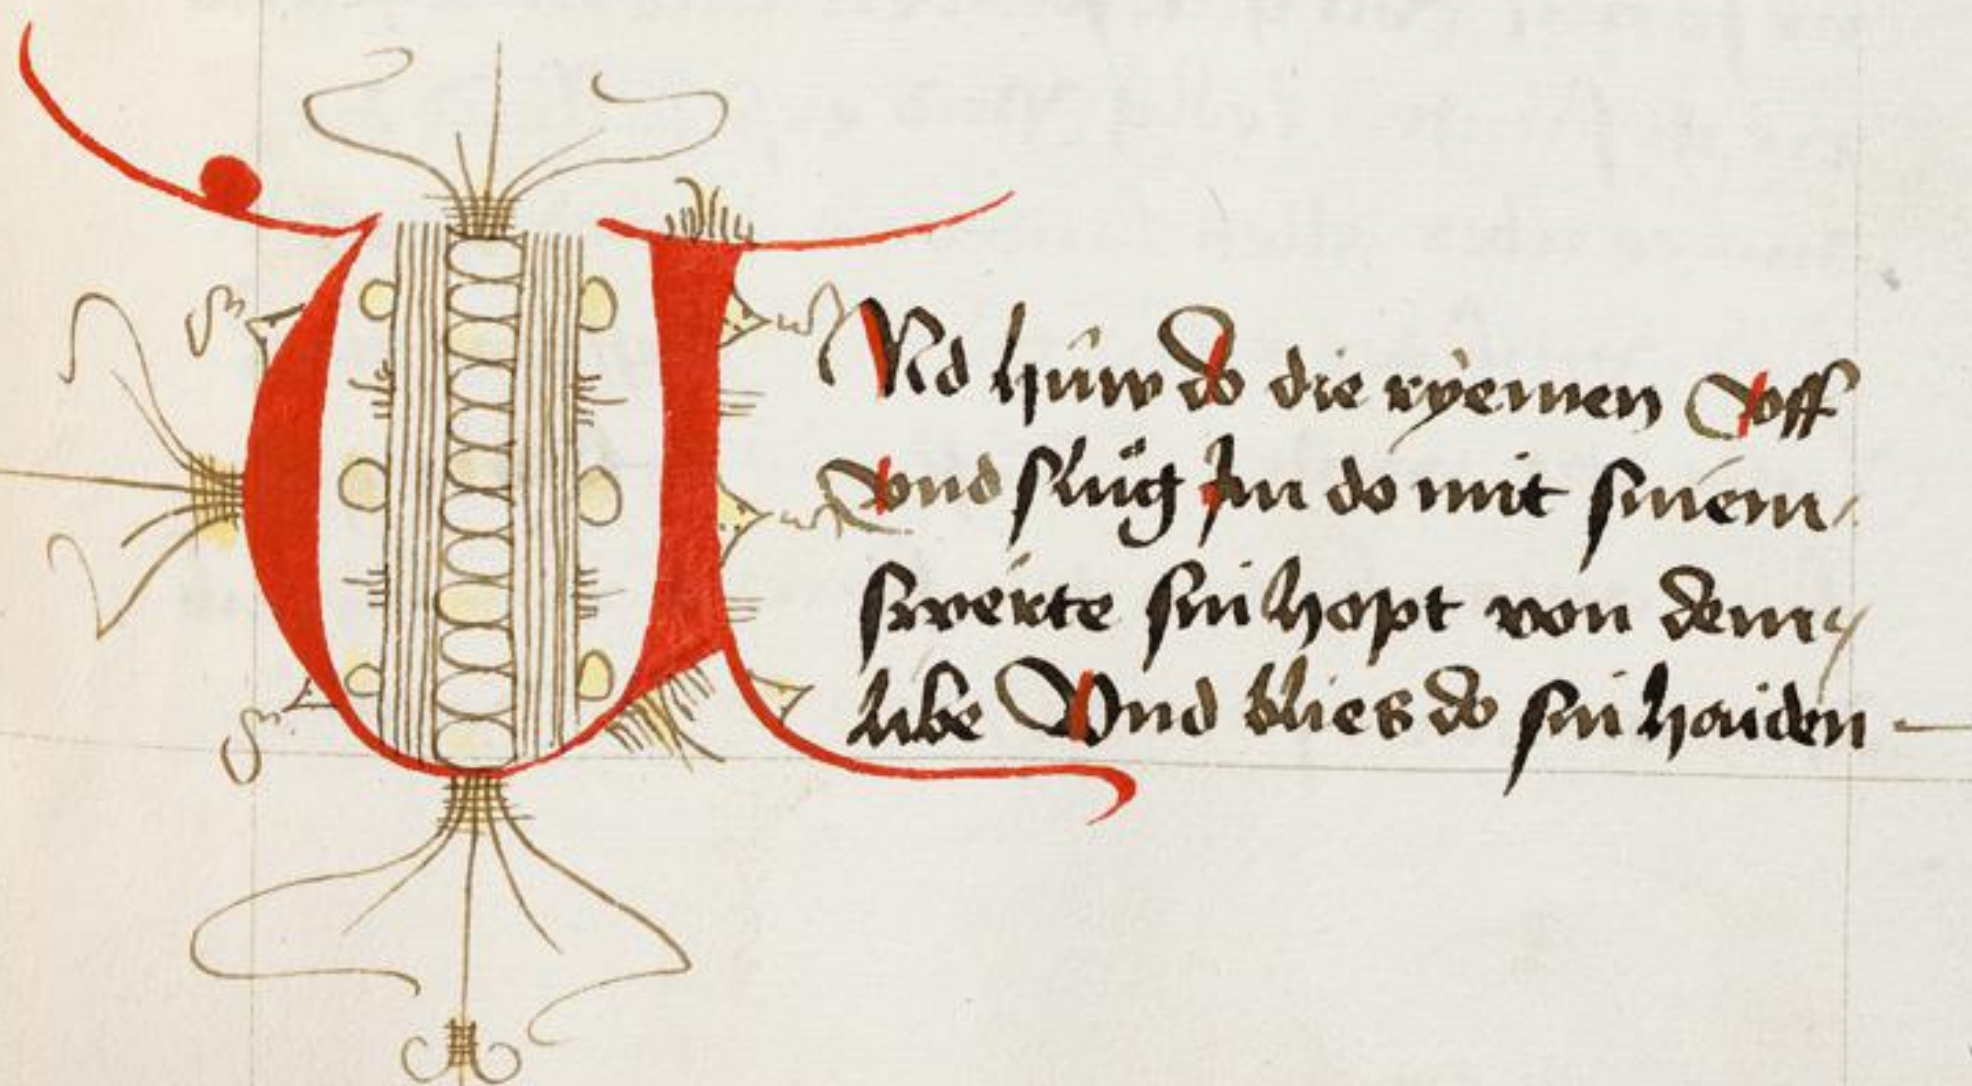 UNd húw do die ryemen Voff
vnd slüg Jm do mit sinem
swerte sin hopt von dem
libe Vnd blies do sin haiden